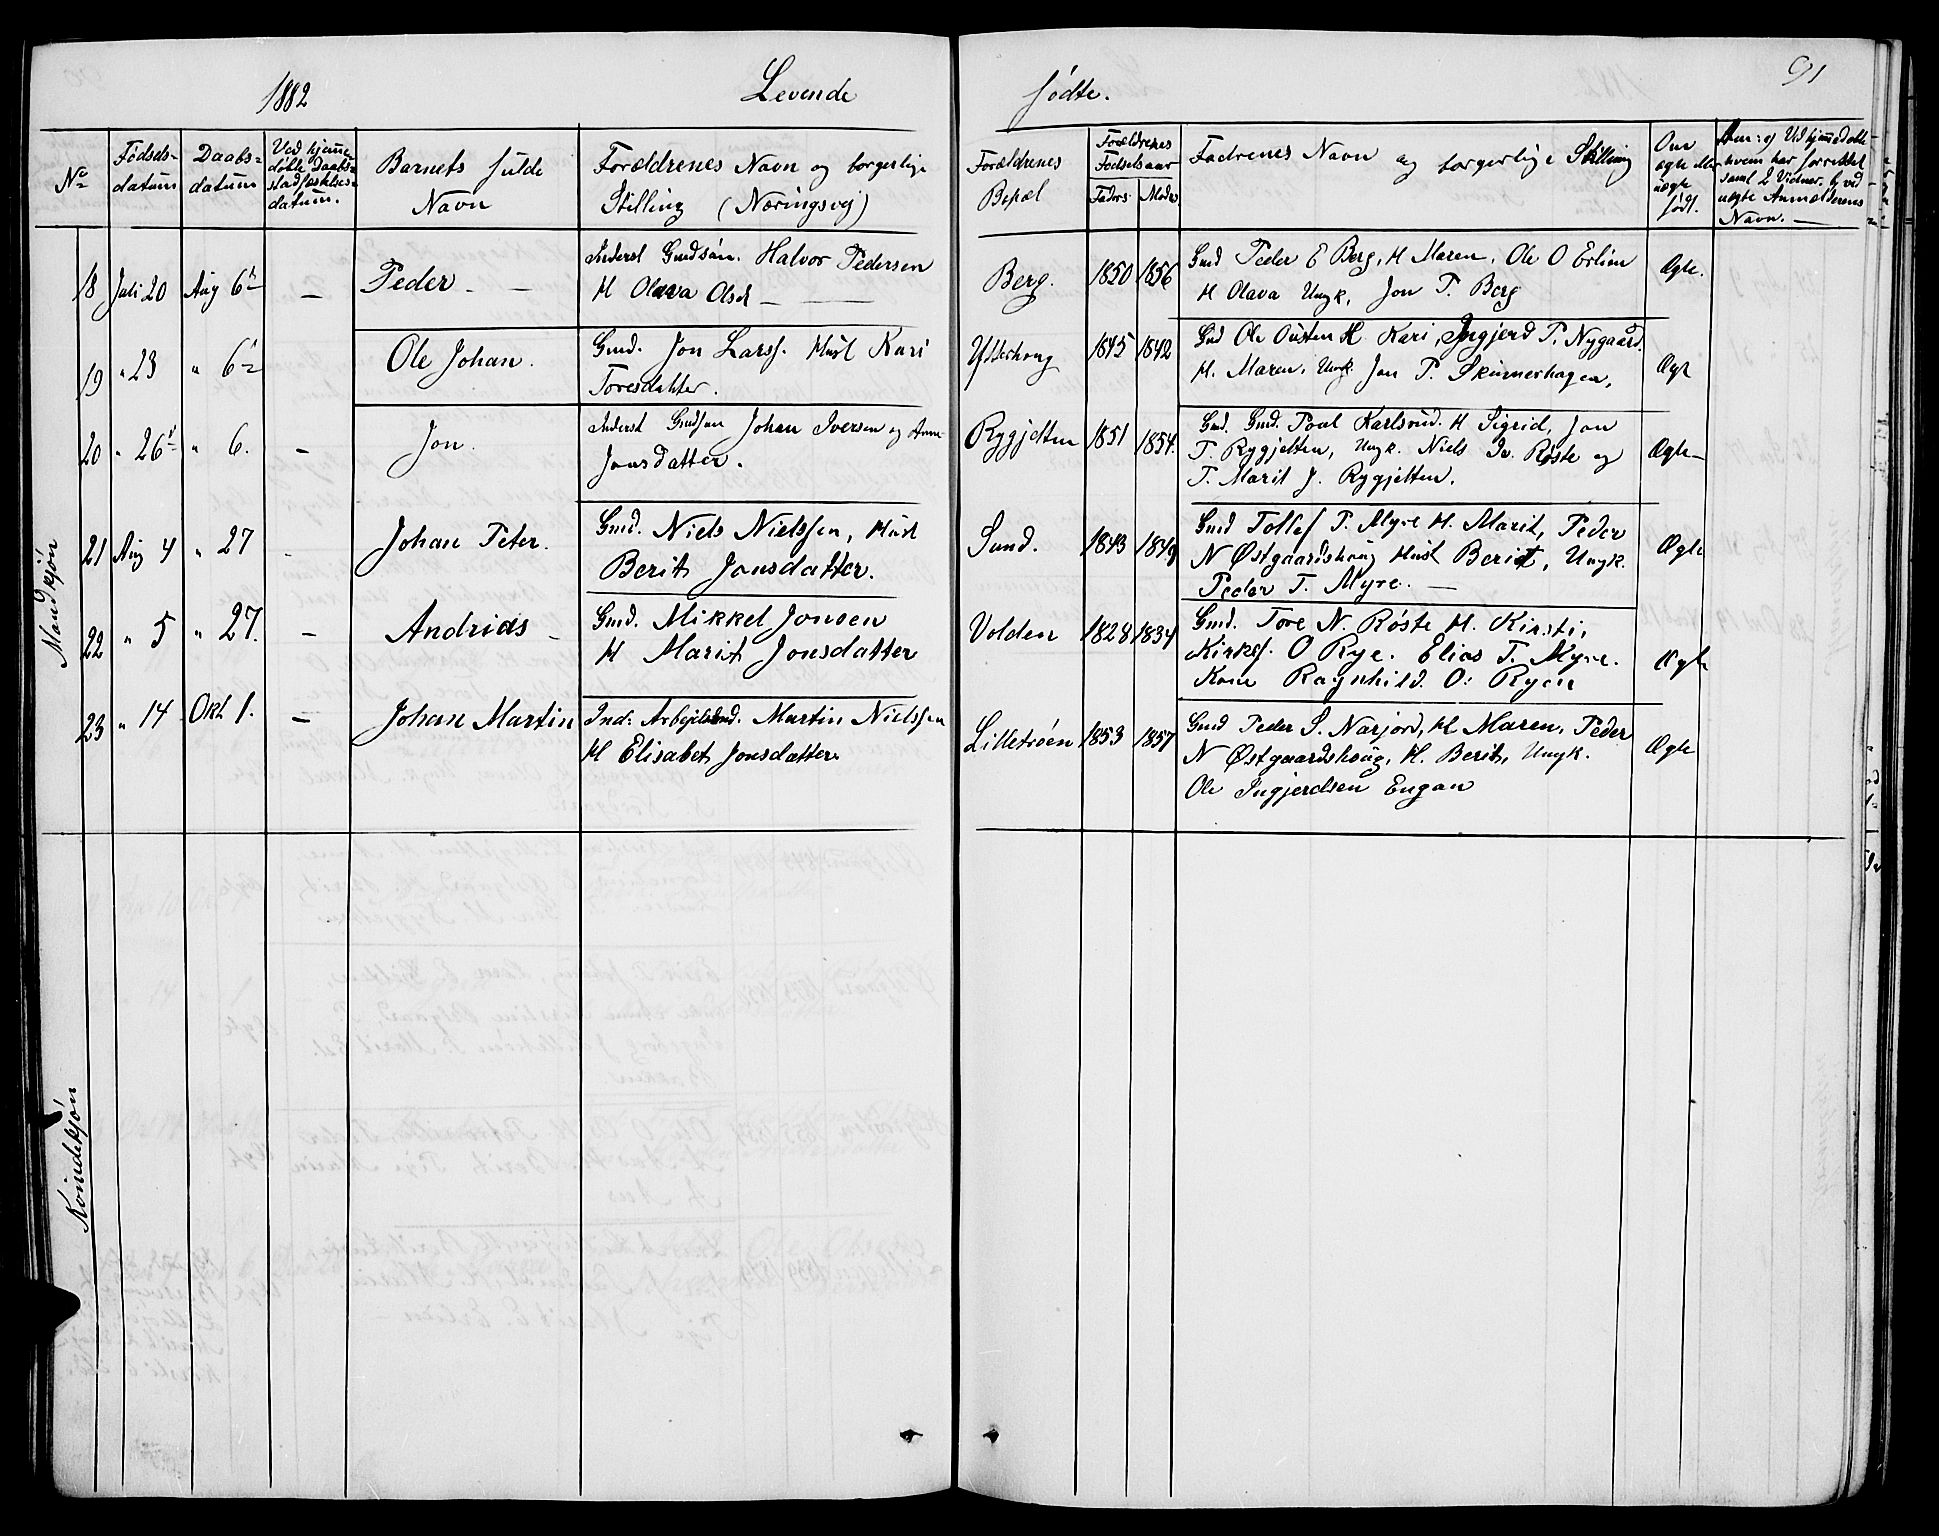 1882 Levende fødte. 91
No
Fødsels-
datum
Daabs-
datum
Ved hjemme-
døbte Daabs-
stadfæstelses-
datum.
Barnets fulde
Navn
Forældrenes Navn og borgerlige
Stilling (Næringsvej)
Forældrenes
Bopæl
Forældrenes
Fødselsaar
Faders Moders
Fadrenes Navn og borgerlige Stilling
Om
ægte eller
uægte
født.
hvem har forrettet
samt 2 Vidner. b, ved
uægte Anmelderens
Navn. —
Mandkjøn
18 Juli 20 Aug 6te — Peder — — Inderst Gmdsøn. Halvor Pedersen
H Olava Olsd — —
Berg. 1850 1856 Gmd Peder E Berg, H Maren, Ole O Erlien
H Olava Ungk, Jon P. Berg
Ægte.
19 " 23 " 6te Ole Johan. Gmd. Jon Larss. Hust Kari
Toresdatter.
Ytterhoug 1845 1842 Gmd Ole Østen H Kari, Ingjerd P. Nygaard.
H. Maren, Ungk. Jon P. Skinnerhagen,
Ægt
20 " 26de " 6. — Jon. Inderst Gmdsøn Johan Iversen og Anne
Jonsdatter.
Rygjelten 1851 1854. Gmd. Gmd. Poul Karlsrud. H Sigrid, Jon
T. Rygjelten, Ungk. Niels Iv. Røste og
P. Marit J. Rygjelten.
Ægte
21 Aug 4 " 27 - Johan Peter. Gmd. Niels Nielssen, Hust
Berit Jonsdatter.
Sund. 1843 1849 Gmd Tollef P. Myre H. Marit, Peder
N Østgaardshoug Hust Berit, Ungk.
Peder T. Myre. —
Ægte
22 " 5 " 27. — Andrias — Gmd. Mikkel Jonsen
H Marit Jonsdatter
Volden 1828 1834 Gmd. Tore N. Røste H. Kirsti,
Kirkes. O Rye. Elias T. Myre.
Kone Ragnhild. O: Ryen
Ægte
23 " 14 Okt 1. — Johan Martin Ind: Arbejdsmd. Martin Nielssen
H Elisabet Jonsdatter.
Lilletrøen 1853 1857 Gmd Peder S. Narjord, H Maren, Peder
N Østgaardshoug, H. Berit, Ungk.
Ole Ingjerdsen Engan
Ægte
Kvindekjøn